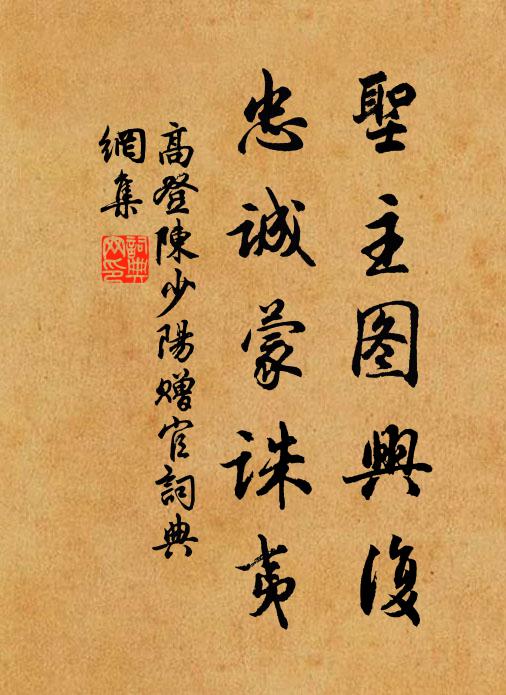 聖主图興復
忠誠蒙誅夷
高登陳少陽赠官詞典
網集
詞典网印